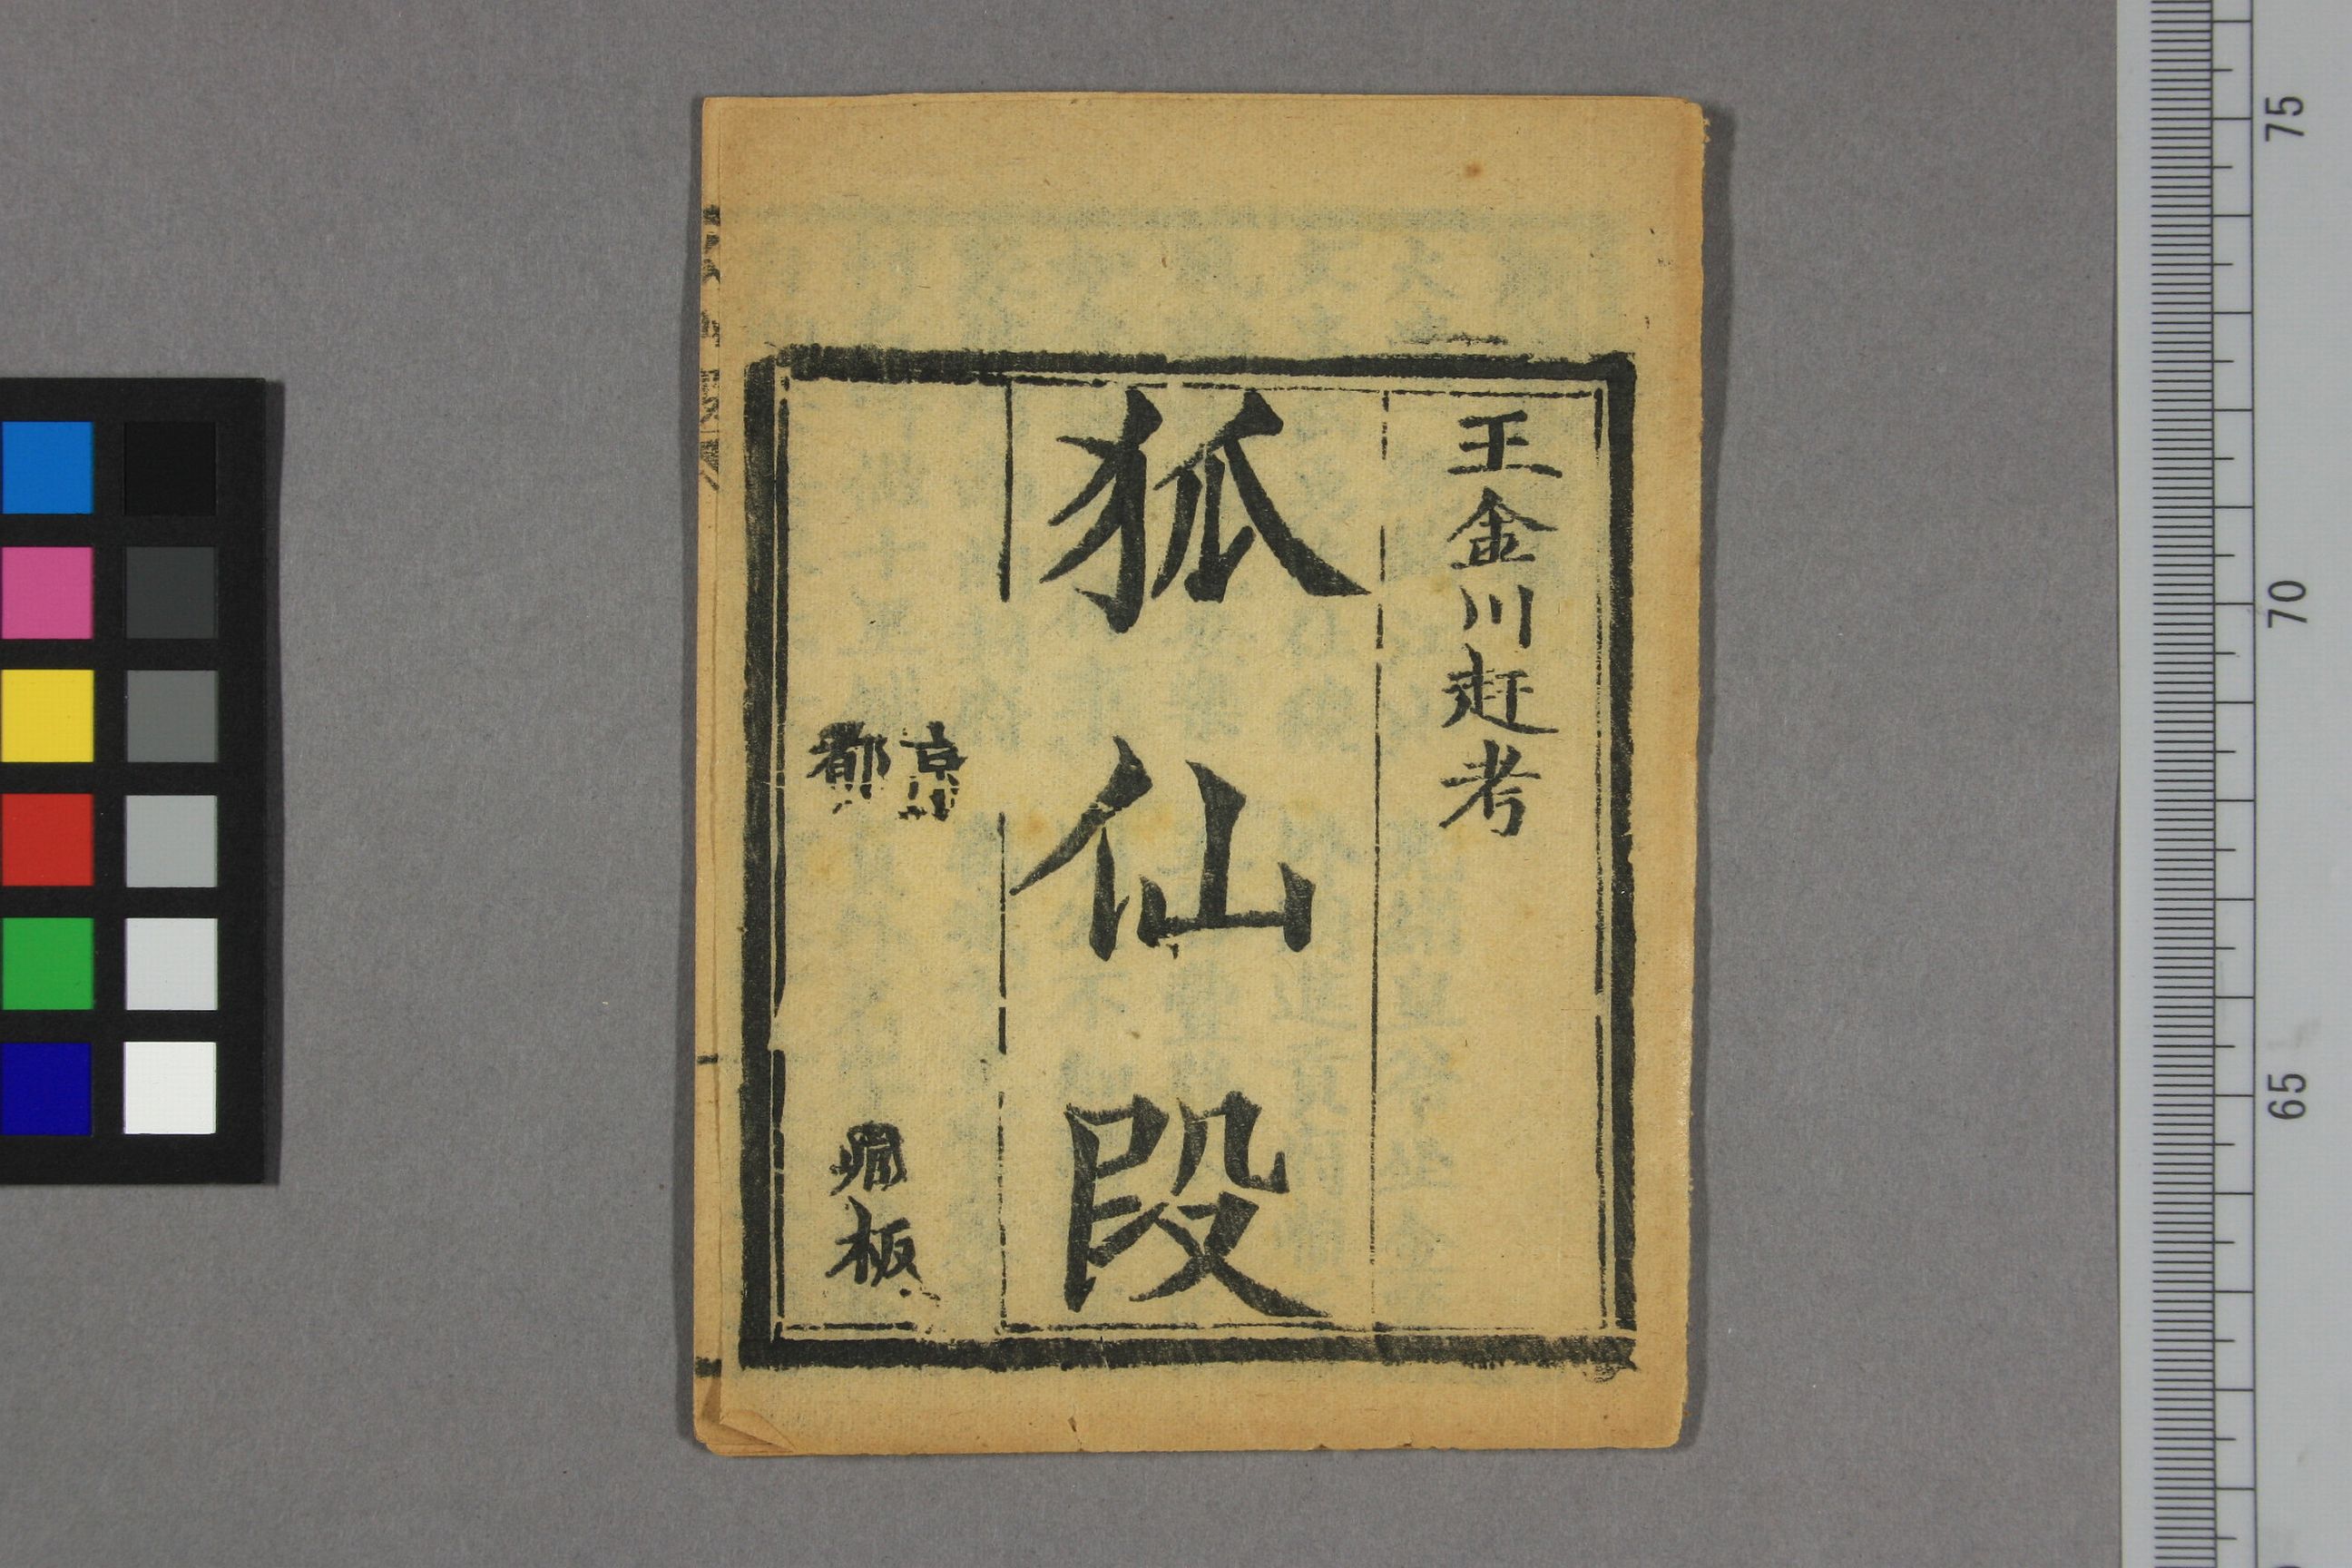 王金川赶考
狐仙段
京都
堂板
75
70
65